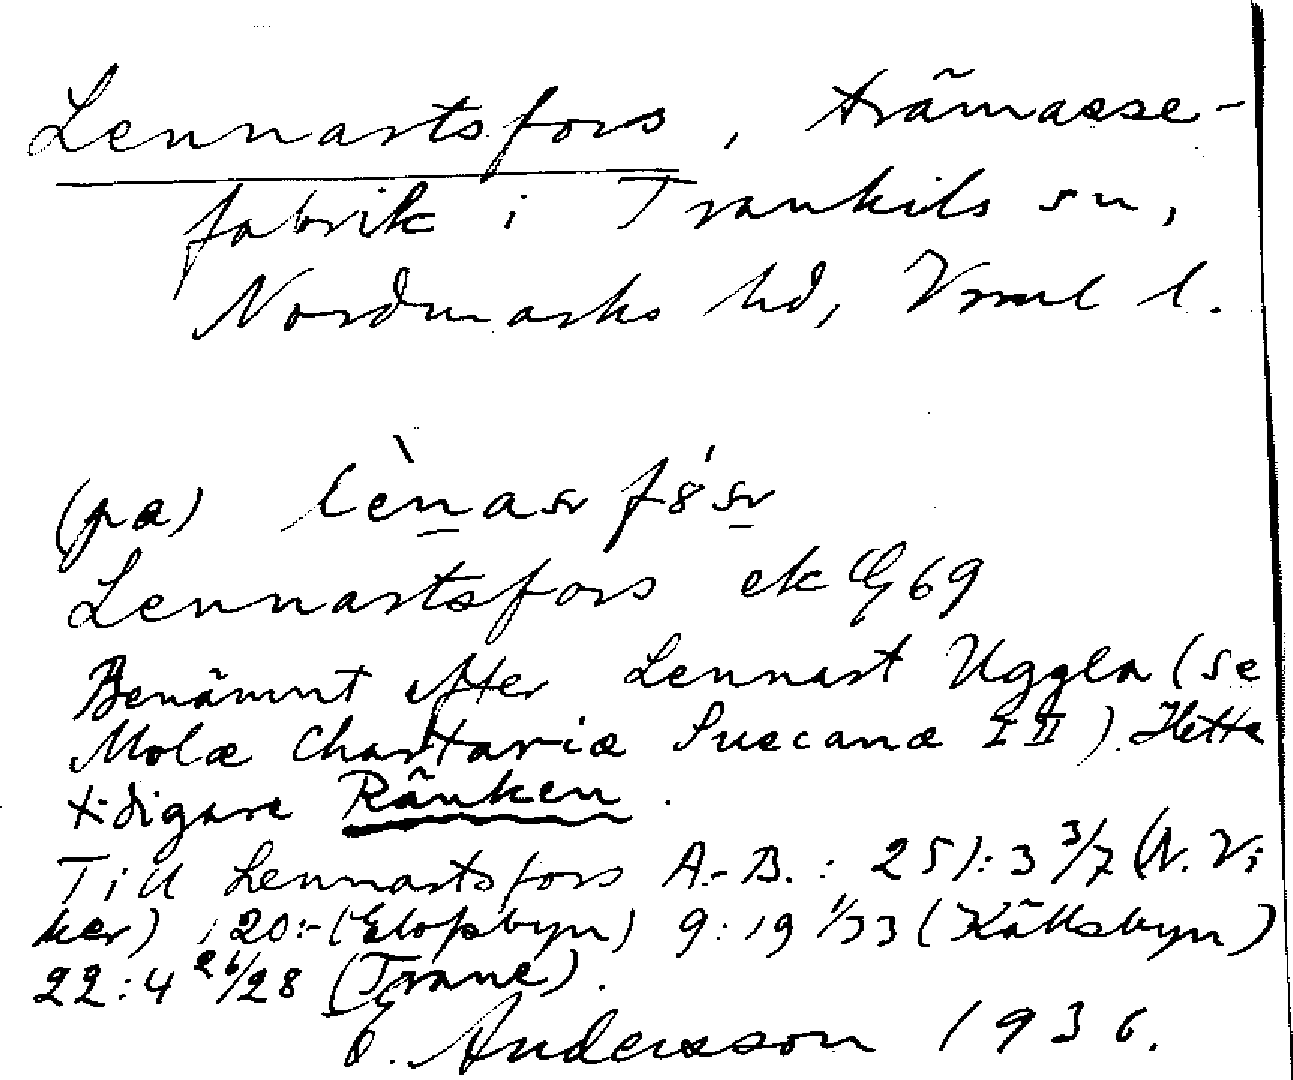 Lennartsfors, trämasse-
fabrik i Trankils sn,
Nordmarks hd, Vrml l.
(pa) lènasr fǿsr
Lennartsfors ek G 69
Benämnt efter Lennart Uggla (se
Molæ Chartariæ Suecanæ I II). Hette
tidigare Ränken.
Till Lennartsfors A.-B.: 251:3 3/7 (N. Vi
ker) 120:- (Elofsbyn) 9:19 1/33 (Källsbyn)
22:4 26/28 (Trane).
E. Andersson 1936.